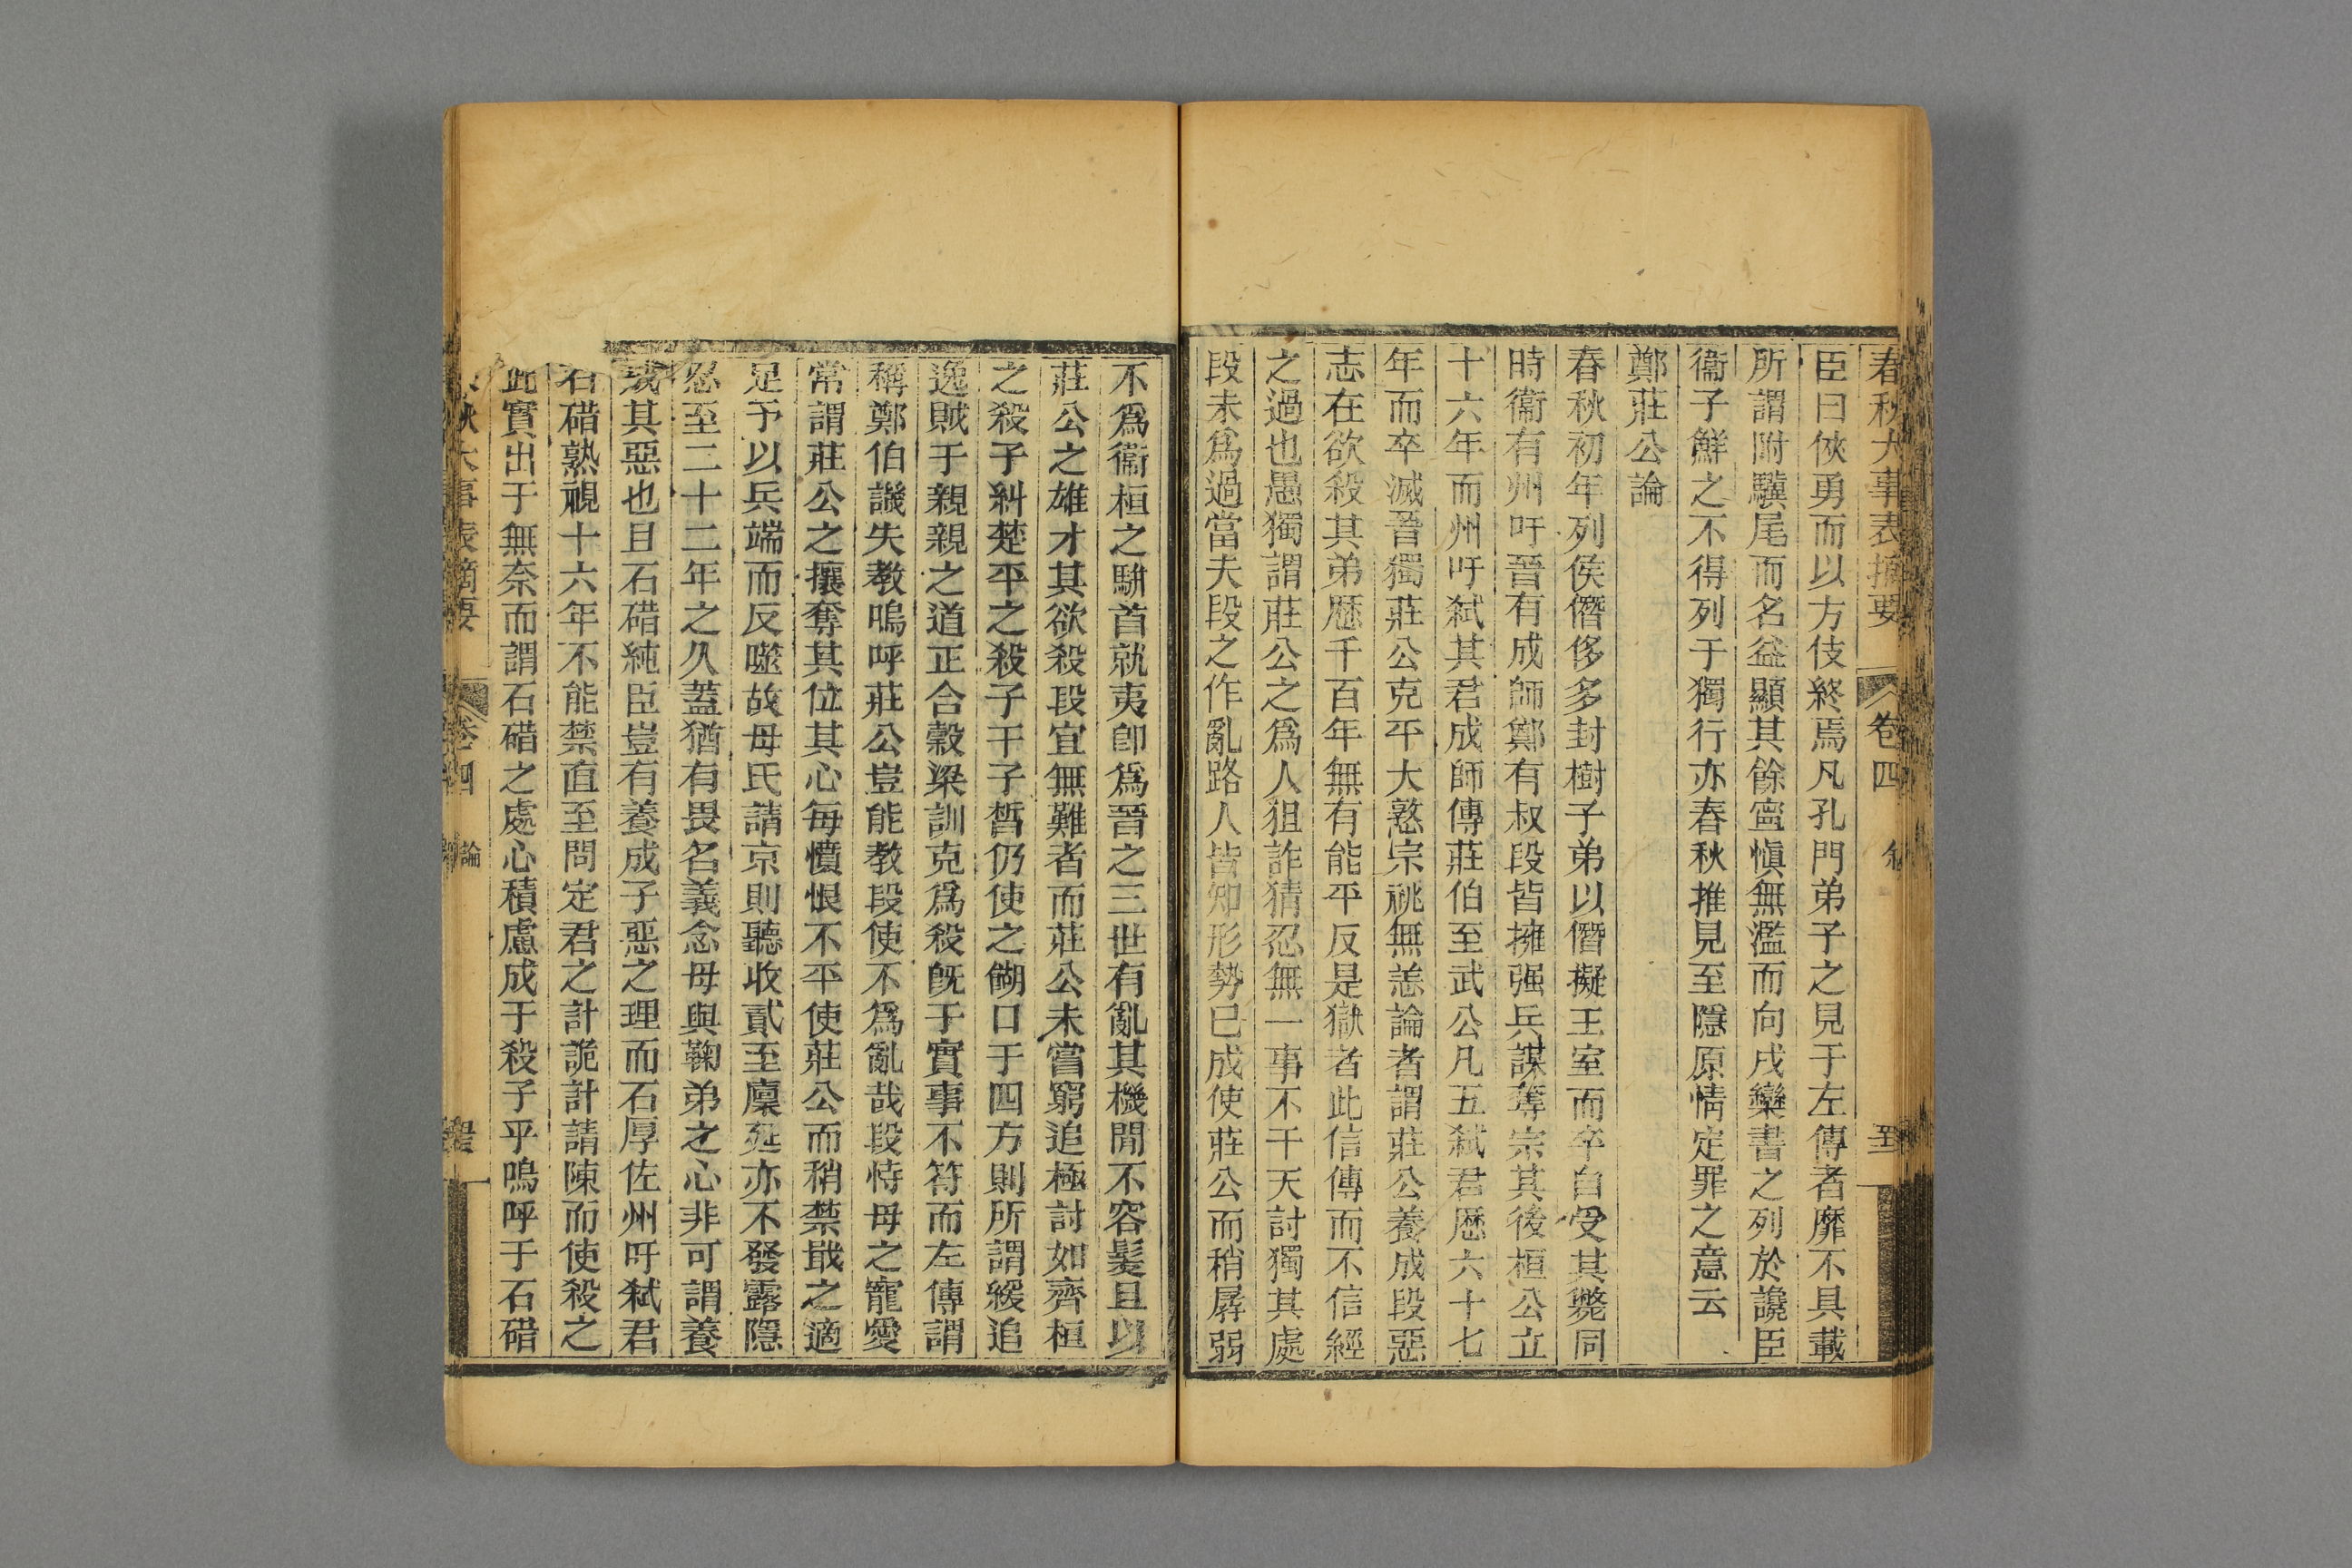 春秋大事表摘要 卷四
臣曰俠勇而以方伎終焉凡孔門弟子之見于左傳者靡不具載
所謂附驥尾而名益顯其餘甯愼無濫而向戌欒書之列於讒臣
衞子鮮之不得列于獨行亦春秋推見至隱原情定罪之意云
鄭莊公論
春秋初年列侯僭侈多封樹子弟以僭擬王室而卒自受其斃同
時衞有州吁晉有成師鄭有叔段皆擁强兵謀奪宗其後桓公立
十六年而州吁弒其君成師傳莊伯至武公凡五弒君歷六十七
年而卒滅晉獨莊公克平大憝宗祧無恙論者謂莊公養成段惡
志在欲殺其弟歷千百年無有能平反是獄者此信傳而不信經
之過也愚獨謂莊公之爲人狙詐猜忍無一事不干天討獨其處
段未爲過當夫段之作亂路人皆知形勢已成使莊公而稍孱弱
不爲衞桓之駢首就夷卽爲晉之三世有亂其機閒不容髮且以
莊公之雄才其欲殺段宜無難者而莊公未嘗窮追極討如齊桓
之殺子糾楚平之殺子干子晳仍使之餬口于四方則所謂緩追
逸賊于親親之道正合穀梁訓克爲殺旣于實事不符而左傳謂
稱鄭伯譏失教嗚呼莊公豈能教段使不爲亂哉段恃母之寵愛
常謂莊公之攘奪其位其心每憤恨不平使莊公而稍禁戢之適
足予以兵端而反噬故母氏請京則聽收貳至廩延亦不發露隱
忍至二十二年之久蓋猶有畏名義念母與鞠弟之心非可謂養
成其惡也且石碏純臣豈有養成子惡之理而石厚佐州吁弒君
石碏熟視十六年不能禁直至問定君之計詭計請陳而使殺之
此實出于無奈而謂石碏之處心積慮成于殺子乎嗚呼于石碏
秋大事表摘要 卷四 論